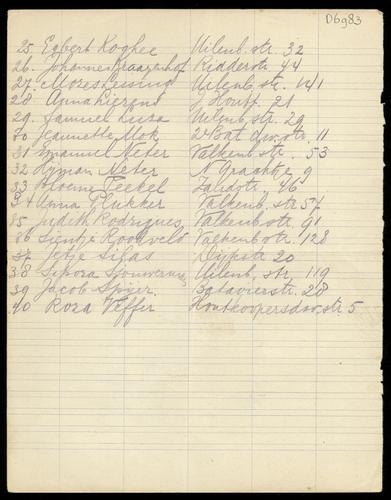 D6983
25 Egbert Koghee Uilenb. str. 32
26. Johannes Kraayenhof Ridderstr 44
27. Mozes Lessing Uilenb. str. 141
28 Anna J Houtt. 21
29. Samuel Luza Uilenb. str. 29
30 Jeannette Mok 2e Bat. dw. str. 11
31 Emanuel Neter Valkenb. str. 53
32 Hyman Neter N Graahtje 9
33 Peekel Zandstr. 46
34 Anna Plukker Valkenb. str 54
35 Judith Rodrigues Valkenbstr. 91
36 Sientje Roosveld Valkenbstr. 128
37 Jetje Sijas 20
38 Sipora Uilenb. str, 119
39 Jacob Spijer. Batavierstr. 28
40 Roza Veffer Houtkoopersdw.str. 5